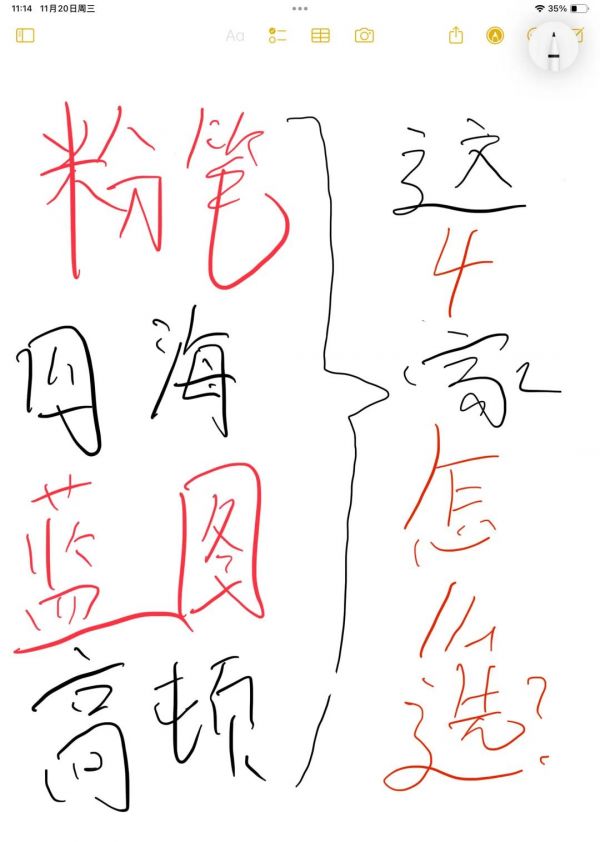 11:14 11月20日周三
35%
Aa
粉笔
四海
蓝图
高顿
这
4
家
怎
么
选?